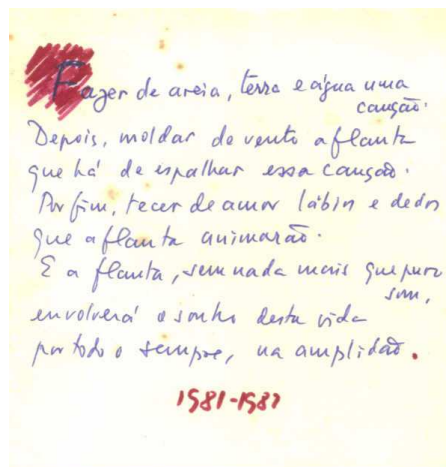 Fazer de areia, terra e água uma
canção.
Depois, moldar de vento a flauta
que há de espalhar essa canção.
Por fim, tecer de amor lábios e dedos
que a flauta animarão.
E a flauta, sem nada mais que puro
som,
envolverá o sonho desta vida
por todo o sempre, na amplidão.
1981-1987